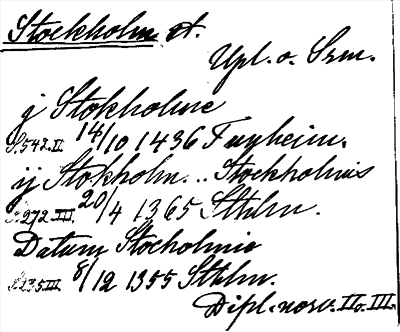 Stockholm st.
Upl. o. Srm.
j Stokholme
S. 542. II. 14/10 1436
ij Stokholm... Stockholmis
S. 272 III. 20/4 1365 Sthlm.
Datum Stocholmie
S. 235 III. 8/12 1355 Sthlm.
Dipl. norv. II o. III.